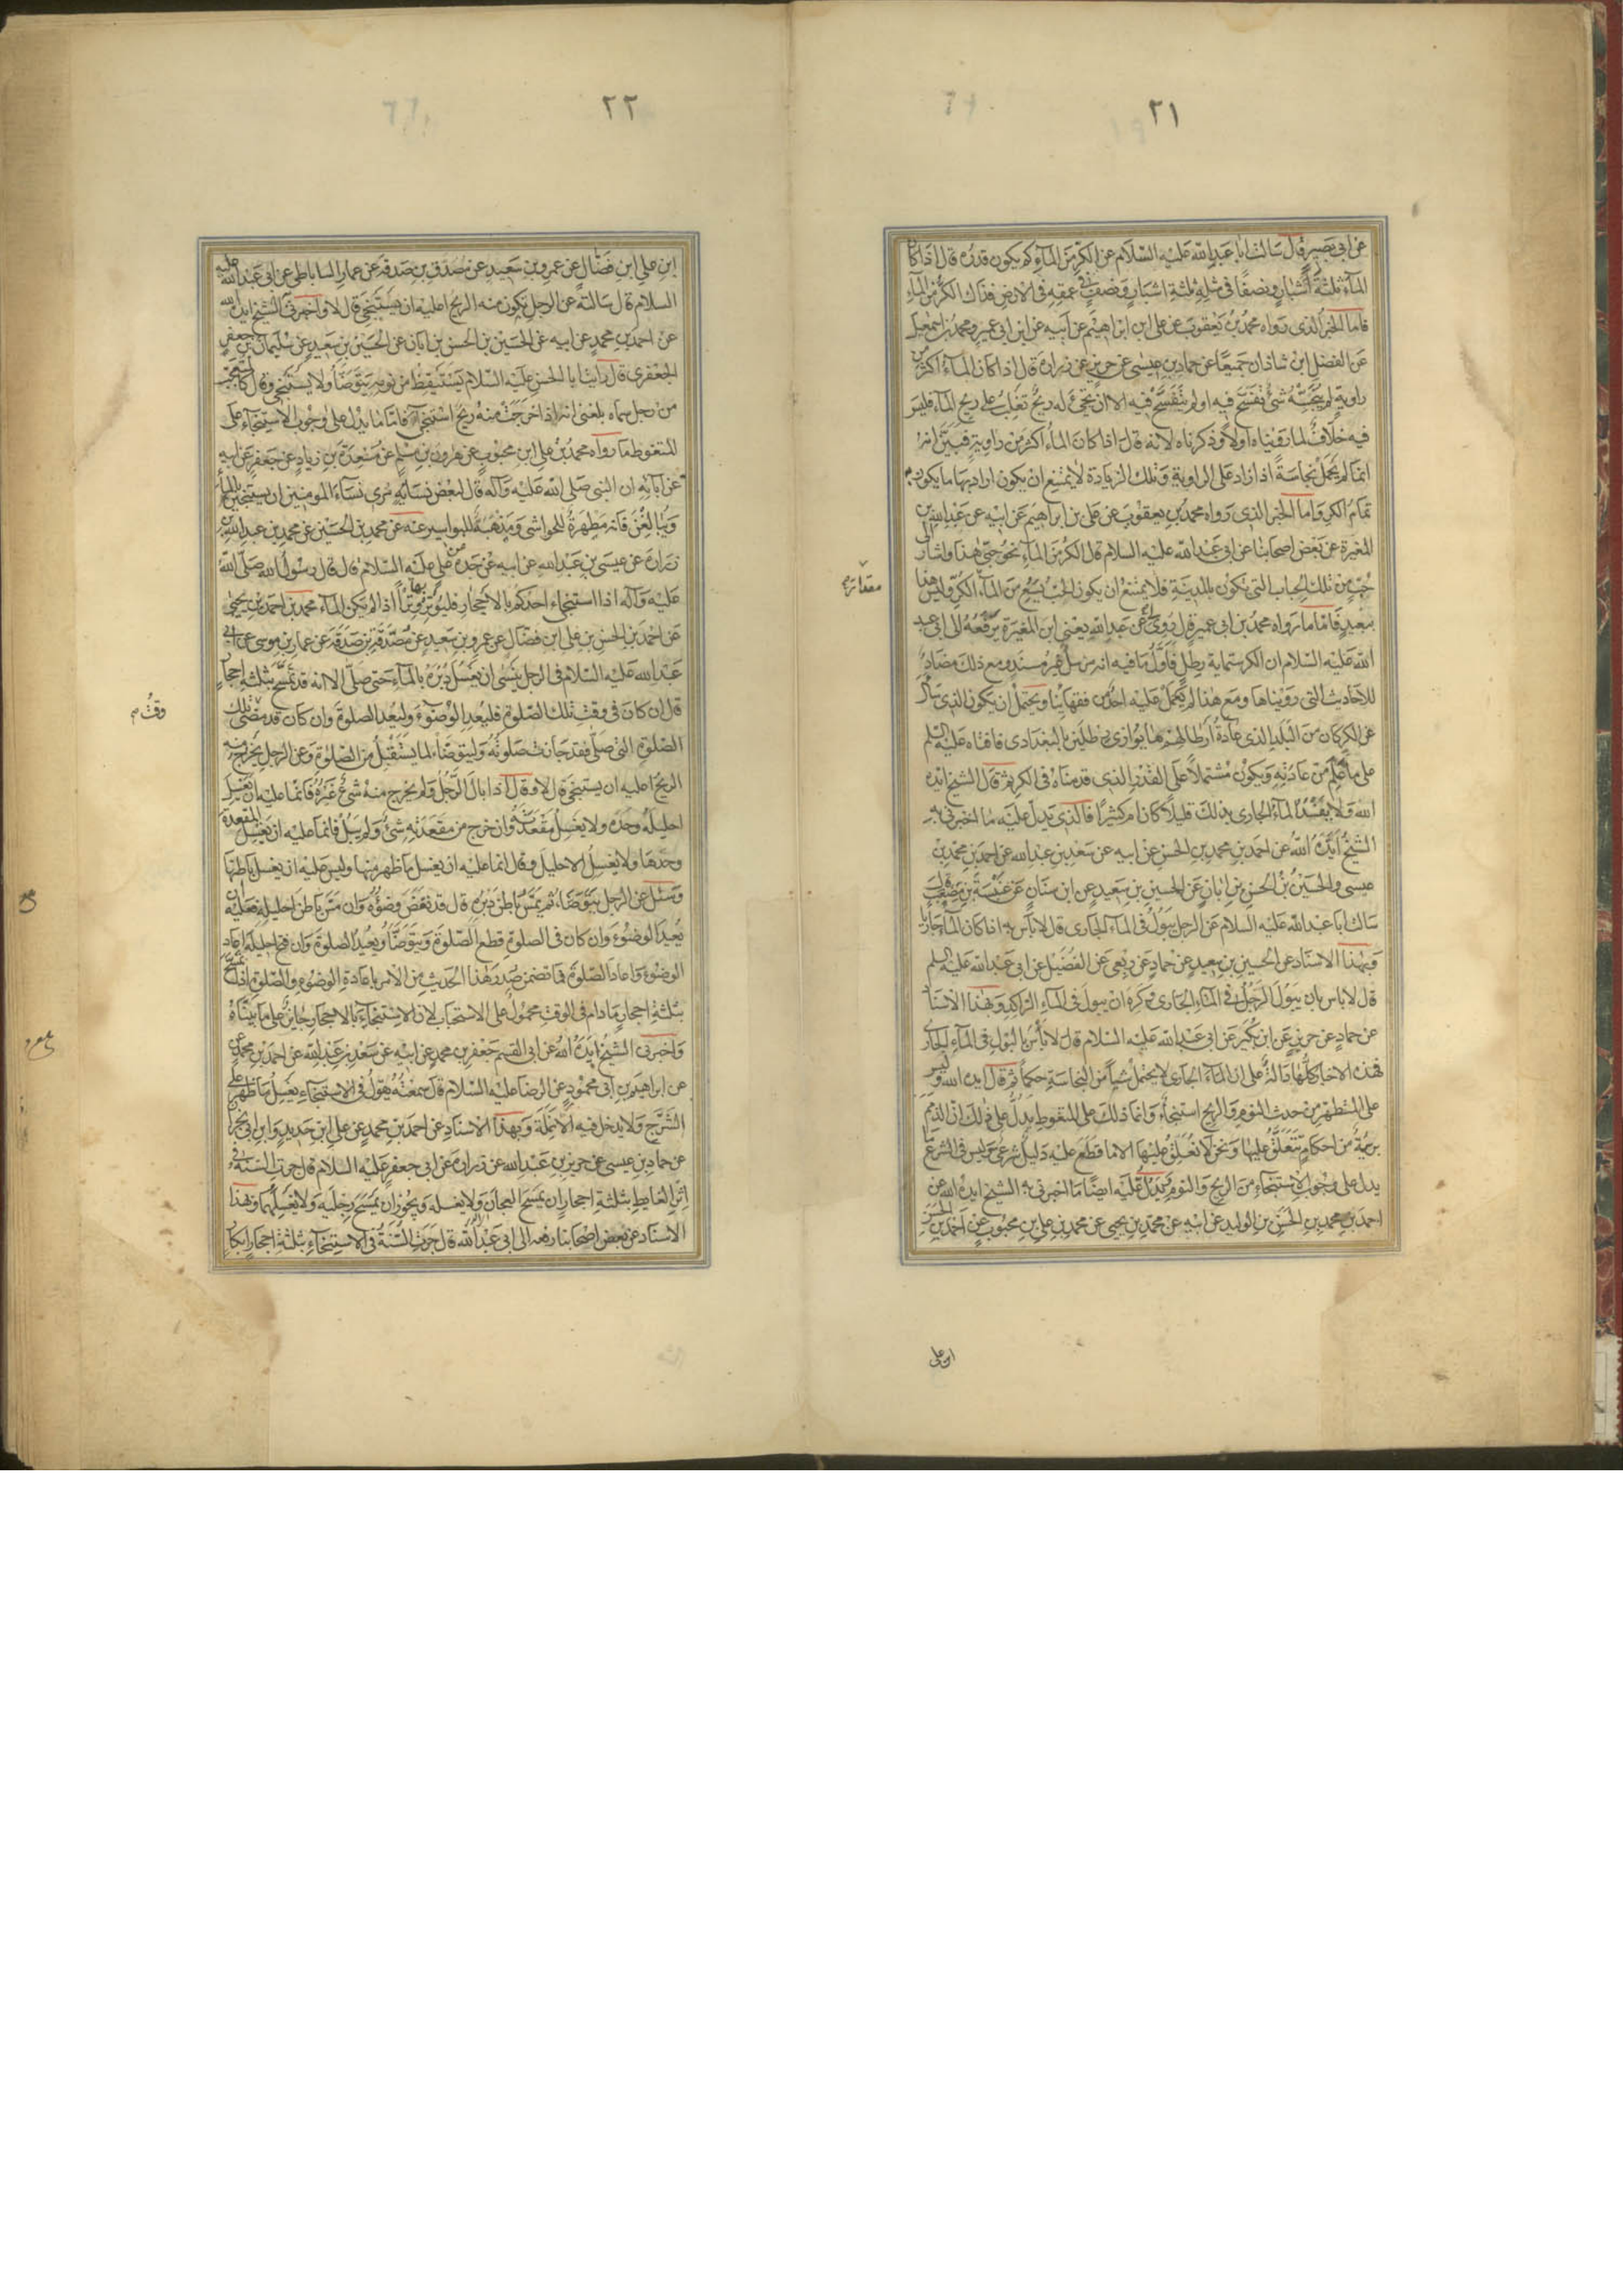 ٢١
عن ابى بصير قال سالت ابا عبد الله عليه السلام عن الكر من الماء كم يكون قدره قال اذا كان
الماء ثلثة اشبار ونصفا فى مثله ثلثة اشبار ونصف فى عمقه فى الارض فذلك الكر من الماء
فاما الخبر الذى رواه محمد بن يعقوب عن على ابن ابراهيم عن ابيه عن ابن ابى عمير ومحمد بن اسمعيل
عن الفضل ابن شاذان جميعا عن حماد بن عيسى عن حريز عن زرارة قال اذا كان الماء اكثر من
راوية لم ينجسه شئ تفسخ فيه او لم يتفسخ فيه الا ان يجئ له ريح تغلب على ريح الماء فليس
فيه خلاف لما رويناه اولا وذكرناه لانه قال اذا كان الماء اكثر من راوية فبين انه
انما لم يحمل نجاسة اذا زاد على الراوية وتلك الزيادة لا يمتنع ان يكون اراد بها ما يكون به
تمام الكر واما الخبر الذى رواه محمد بن يعقوب عن على بن ابراهيم عن ابيه عن عبد الله بن
المغيرة عن بعض اصحابنا عن ابى عبد الله عليه السلام قال الكر من الماء نحو حبى هذا واشار الى
حب من تلك الحباب التى تكون بالمدينة فلا يمتنع ان يكون الحب يسع من الماء الكر وليس هذا
ببعيد فاما ما رواه محمد بن ابى عمير قال روى لى عن عبد الله يعنى ابن المغيرة يرفعه الى ابى عبد
الله عليه السلام ان الكر ستماية رطل فاول ما فيه انه مرسل غير مسند ومع ذلك مضاد
للاحاديث التى رويناها ومع هذا لم يعمل عليه احد من فقهائنا ويحتمل ان يكون الذى سأل
عن الكر كان من البلد الذى عادة ارطالهم ما يوازى رطلين بالبغدادى فافتاه عليه السلم
على ما علم من عادته ويكون مشتملا على القدر الذى قدمناه فى الكر ثم قال الشيخ ايده
الله ولا يفسد الماء الجارى بذلك قليلا كان ام كثيرا فالذى يدل عليه ما اخبرنى به
الشيخ ايده الله عن احمد بن محمد بن الحسن عن ابيه عن سعد بن عبد الله عن احمد بن محمد بن
عيسى والحسين بن الحسن بن ابان عن الحسين بن سعيد عن ابن سنان عن عنبسة بن مصعب قال
سالت ابا عبد الله عليه السلام عن الرجل يبول فى الماء الجارى قال لا باس به اذا كان الماء جاريا
وبهذا الاسناد عن الحسين بن سعيد عن حماد عن ربعى عن الفضيل عن ابى عبد الله عليه السلم
قال لا باس بان يبول الرجل فى الماء الجارى وكره ان يبول فى الماء الراكد وبهذا الاسناد
عن حماد عن حريز عن ابن بكير عن ابى عبد الله عليه السلام قال لا باس بالبول فى الماء الجارى
فهذه الاخبار كلها دالة على ان الماء الجارى لا يحتمل شيا من النجاسة حكما ثم قال ايده الله وليس
على المتطهر من حدث النوم والريح استنجاء وانما ذلك على المتغوط يدل على ذلك ان الذمم
بريئة من احكام تتعلق عليها ونحن لا نعلق عليها الا ما قطع عليه دليل شرعى وليس فى الشرع ما
يدل على وجوب الاستنجاء من الريح والنوم ويدل عليه ايضا ما اخبرنى به الشيخ ايده الله عن
احمد بن محمد بن الحسن بن الوليد عن ابيه عن محمد بن يحيى عن محمد بن على بن محبوب عن احمد بن الحسن
ابن على
٢٢
ابن على ابن فضال عن عمرو بن سعيد عن مصدق بن صدقة عن عمار الساباطى عن ابى عبد الله عليه
السلام قال سالته عن الرجل يكون منه الريح اعليه ان يستنجى قال لا واخبرنى الشيخ ايده الله
عن احمد بن محمد عن ابيه عن الحسين بن الحسن بن ابان عن الحسين بن سعيد عن سليمان بن جعفر
الجعفرى قال رايت ابا الحسن عليه السلام يستيقظ من نومه يتوضأ ولا يستنجى وقال كالمتعجب
من رجل سماه بلغنى انه اذا خرجت منه ريح استنجى فاما ما يدل على وجوب الاستنجاء على
المتغوط ما رواه محمد بن على ابن محبوب عن هرون بن مسلم عن مسعدة بن زياد عن جعفر عن ابيه
عن آبائه ان النبى صلى الله عليه وآله قال لبعض نسائه مرى نساء المومنين ان يستنجين بالماء
ويبالغن فانه مطهرة للحواشى ومذهبة للبواسير عنه عن محمد بن الحسين عن محمد بن عبد الله بن
زرارة عن عيسى بن عبد الله عن ابيه عن جده عن على عليه السلام قال قال رسول الله صلى الله
عليه وآله اذا استنجى احدكم بالاحجار فليوتر بها وترا اذا لم يكن الماء محمد بن احمد بن يحيى
عن احمد بن الحسن بن على ابن فضال عن عمرو بن سعيد عن مصدق بن صدقة عن عمار بن موسى عن ابى
عبد الله عليه السلام فى الرجل ينسى ان يغسل دبره بالماء حتى صلى الا انه قد تمسح بثلثة احجار
قال ان كان فى وقت تلك الصلوة فليعد الوضوء وليعد الصلوة وان كان قد مضى وقت تلك
الصلوة التى صلى فقد جازت صلوته وليتوضأ لما يستقبل من الصلوة وعن الرجل يخرج منه
الريح اعليه ان يستنجى قال لا وقال اذا بال الرجل ولم يخرج منه شئ غيره فانما عليه ان يغسل
احليله وحده ولا يغسل مقعدته وان خرج من مقعدته شئ ولم يبل فانما عليه ان يغسل المقعدة
وحدها ولا يغسل الاحليل وقال انما عليه ان يغسل ما ظهر منها وليس عليه ان يغسل باطنها
وسئل عن الرجل يتوضأ ثم يمس باطن دبره قال قد نقض وضوؤه وان مس باطن احليله فعليه ان
يعيد الوضوء وان كان فى الصلوة قطع الصلوة ويتوضأ ويعيد الصلوة وان فتح احليله اعاد
الوضوء واعاد الصلوة فما تضمن صدر هذا الحديث من الامر باعادة الوضوء والصلوة اذا تمسح
بثلثة احجار ما دام فى الوقت محمول على الاستحباب لان الاستنجاء بالاحجار جائز على ما بيناه
واخبرنى الشيخ ايده الله عن ابى القسم جعفر بن محمد عن ابيه عن سعد بن عبد الله عن احمد بن محمد
عن ابراهيم بن ابى محمود عن الرضا عليه السلام قال سمعته يقول فى الاستنجاء يغسل ما ظهر على
الشرج ولا يدخل فيه الانملة وبهذا الاسناد عن احمد بن محمد عن على ابن حديد وابن ابى نجران
عن حماد بن عيسى عن حريز بن عبد الله عن زرارة عن ابى جعفر عليه السلام قال جرت السنة فى
اثر الغايط بثلثة احجار ان يمسح العجان ولا يغسله ويجوز ان يمسح رجليه ولا يغسلهما وبهذا
الاسناد عن بعض اصحابنا رفعه الى ابى عبد الله قال جرت السنة فى الاستنجاء بثلثة احجار ابكار
وقت م